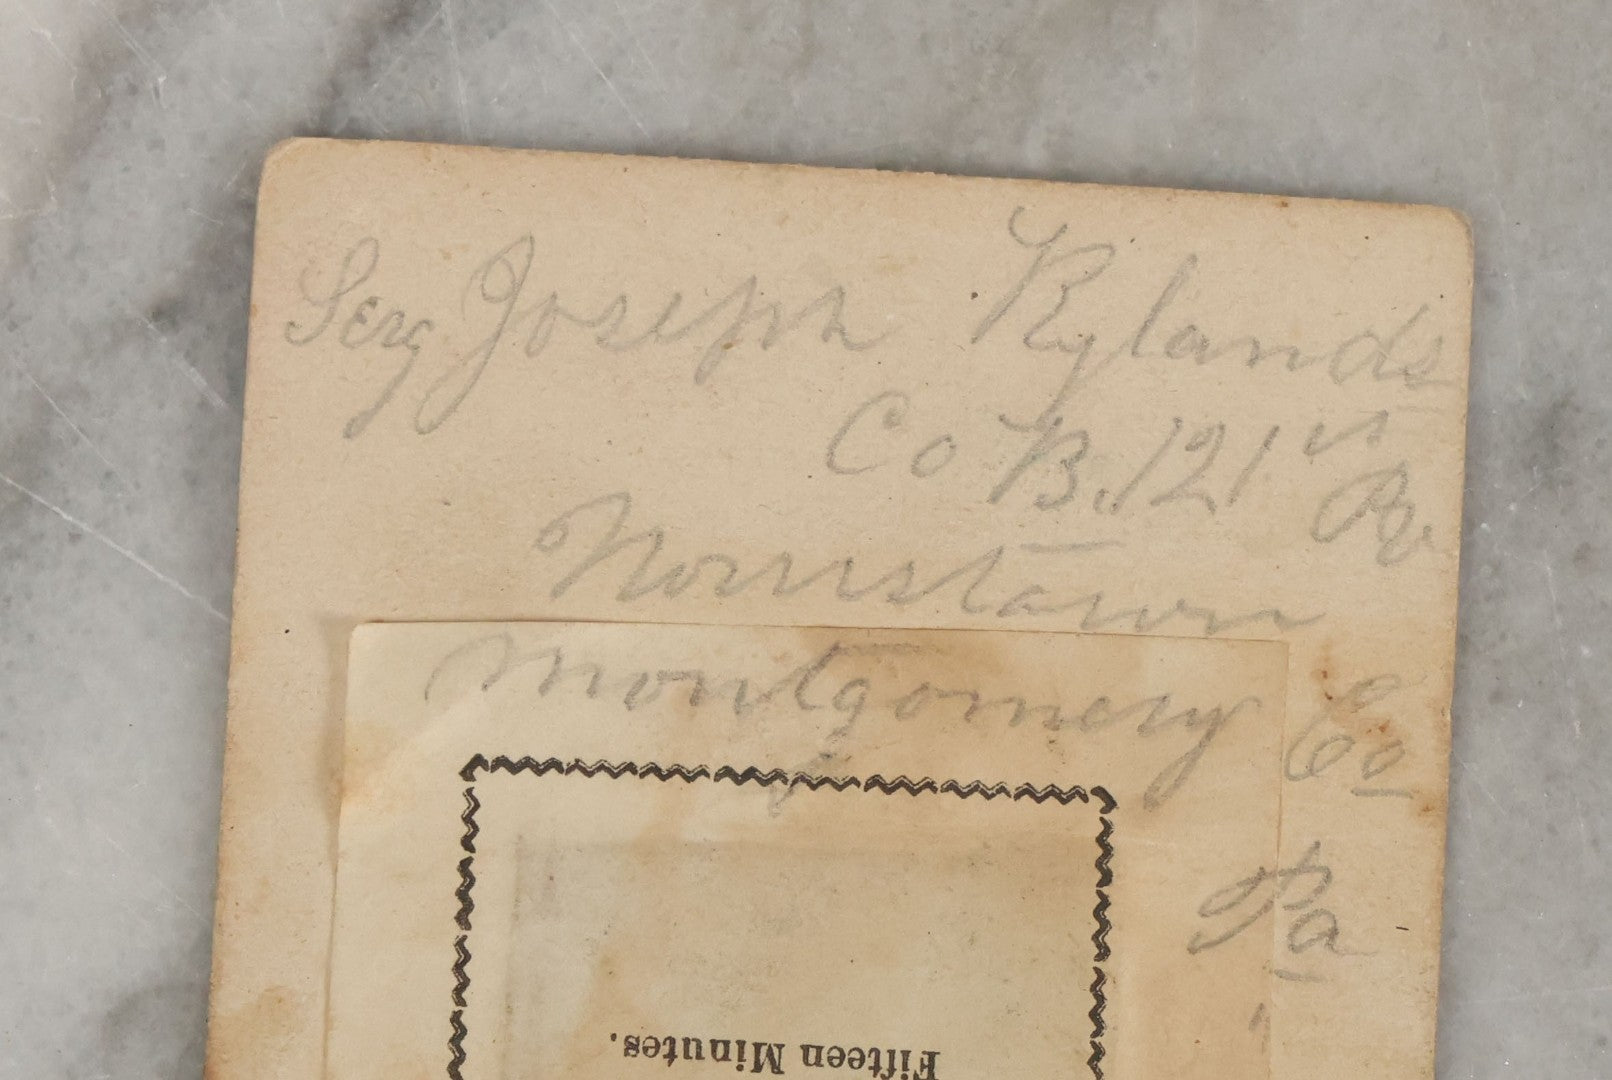 Serg Joseph Rylands
Co B. 121st
Pa
Norristown
Montgomery Co
Pa
Fifteen Minutes.